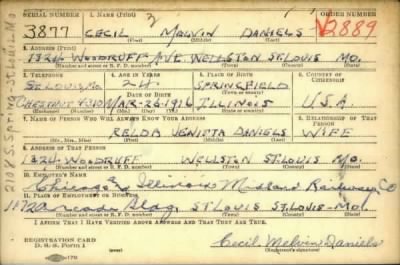 SERIAL NUMBER 1. NAME (Print) ORDER NUMBER
3877 CECIL MELVIN DANIELS V2889
(First) (Middle) (Last)
2. ADDRESS (Print)
1324 WOODRUFF AVE. WELLSTON ST. LOUIS MO.
(Number and street or R. F. D. number) (Town) (County) (State)
3. TELEPHONE 4. AGE IN YEARS 5. PLACE OF BIRTH 6. COUNTRY OF CITIZENSHIP
ST. LOUIS, MO. 24 SPRINGFIELD
DATE OF BIRTH (Town or county)
CHESTNUT MAR-26-1916 ILLINOIS U.S.A.
(Exchange) (Number) (Mo.) (Day) (Yr.) (State or country)
7. NAME OF PERSON WHO WILL ALWAYS KNOW YOUR ADDRESS 8. RELATIONSHIP OF THAT PERSON
RELDA VENITTA DANIELS WIFE
(Mr., Mrs., Miss) (First) (Middle) (Last)
9. ADDRESS OF THAT PERSON
1324 WOODRUFF WELLSTON ST. LOUIS MO.
(Number and street or R. F. D. number) (Town) (County) (State)
10. EMPLOYER'S NAME
Chicago & Illinois Midland Railway Co
11. PLACE OF EMPLOYMENT OR BUSINESS
Arcade Bldg. ST. LOUIS ST. LOUIS - MO.
(Number and street or R. F. D. number) (Town) (County) (State)
I AFFIRM THAT I HAVE VERIFIED ABOVE ANSWERS AND THAT THEY ARE TRUE.
REGISTRATION CARD
D. S. S. FORM 1
Cecil Melvin Daniels
(Registrant's signature)
2108 S. Spring - St. Louis - Mo